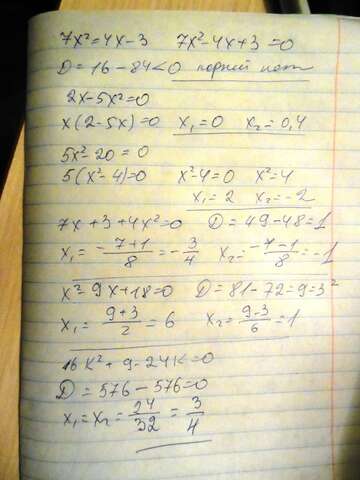 7x²=4x-3 7x²-4x+3=0
D=16-84<0 корней нет
2x-5x²=0
x(2-5x)=0 x₁=0 x₂=0,4
5x²-20=0
5(x²-4)=0 x²-4=0 x²=4
x₁=2 x₂=-2
7x+3+4x²=0 D=49-48=1
x₁=-7+1/8=-3/4 x₂=-7-1/8=-1
x²-9x+18=0 D=81-72=9=3²
x₁=9+3/2=6 x₂=9-3/6=1
16k²+9-24k=0
D=576-576=0
x₁=x₂=24/32=3/4